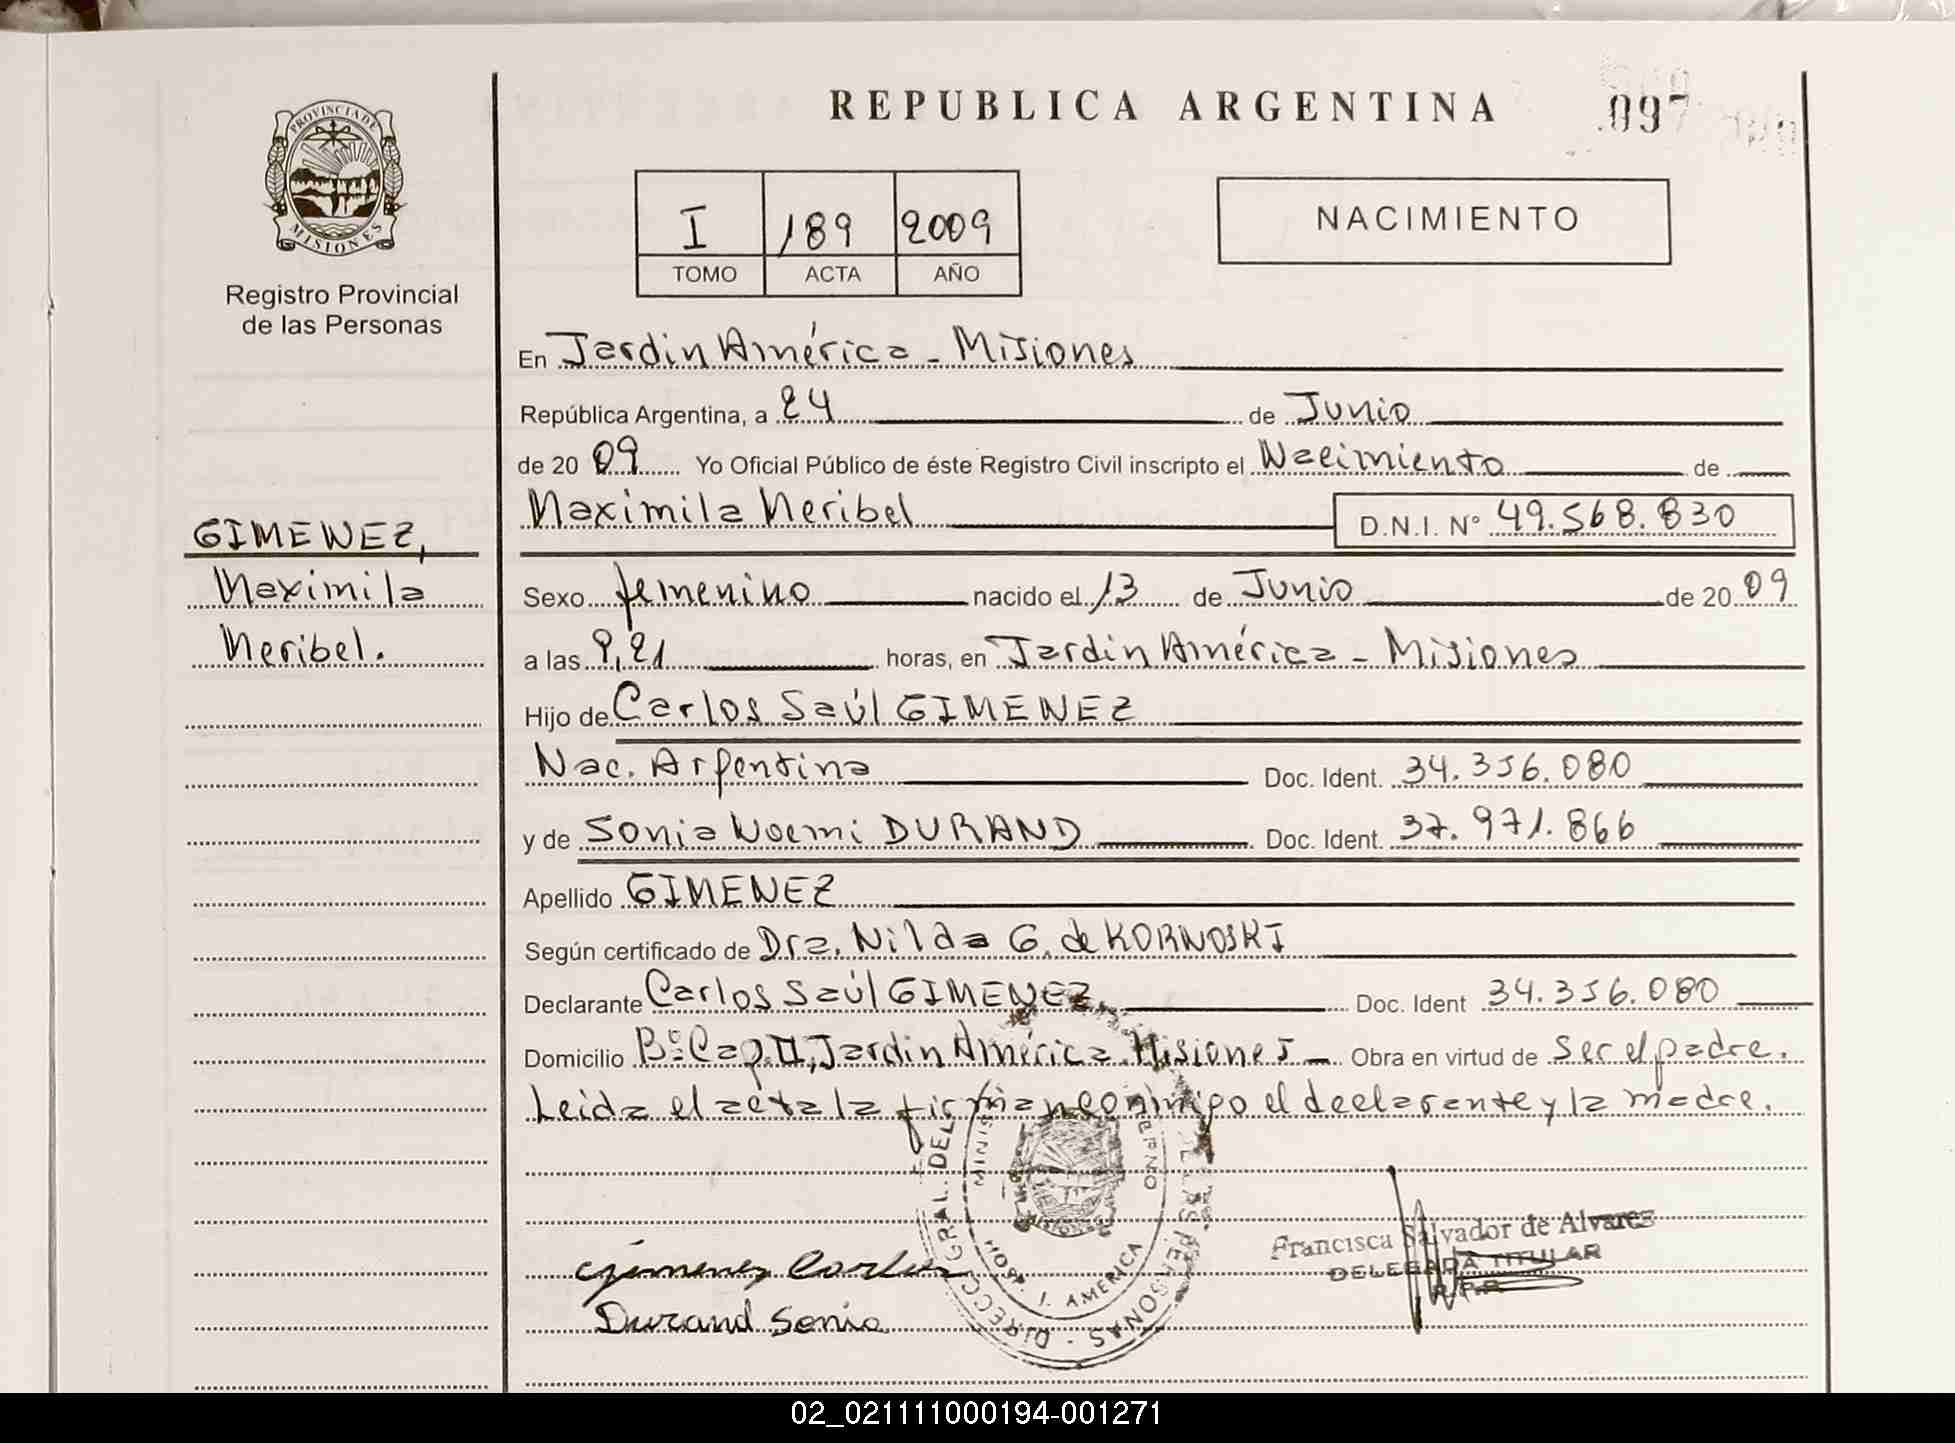 REPUBLICA ARGENTINA
097
PROVINCIA DE
MISIONES
Registro Provincial
de las Personas
I 189 2009
TOMO ACTA AÑO
NACIMIENTO
En Jardin América - Misiones
República Argentina, a 24 de Junio
de 20 09 Yo Oficial Público de éste Registro Civil inscripto el Nacimiento de
Maximila Meribel D.N.I. N° 49.568.830
GIMENEZ,
Maximila
Meribel.
Sexo femenino nacido el 13 de Junio de 20 09
a las 9,21 horas, en Jardin América - Misiones
Hijo de Carlos Saúl GIMENEZ
Nac. Argentina Doc. Ident. 34.356.080
y de Sonia Noemi DURAND Doc. Ident. 37.971.866
Apellido GIMENEZ
Según certificado de Dra. Nilda G. de KORNOSKI
Declarante Carlos Saúl GIMENEZ. Doc. Ident 34.356.080
Domicilio B° Cap. II, Jardin América Misiones - Obra en virtud de Ser el padre.
Leida el acta la firman conmigo el declarante y la madre.
Gimenez Carlos
Durand Sonia
Francisca Salvador de Alvarez
DELEGADA TITULAR
R.P.P.
J. AMERICA
02_021111000194-001271